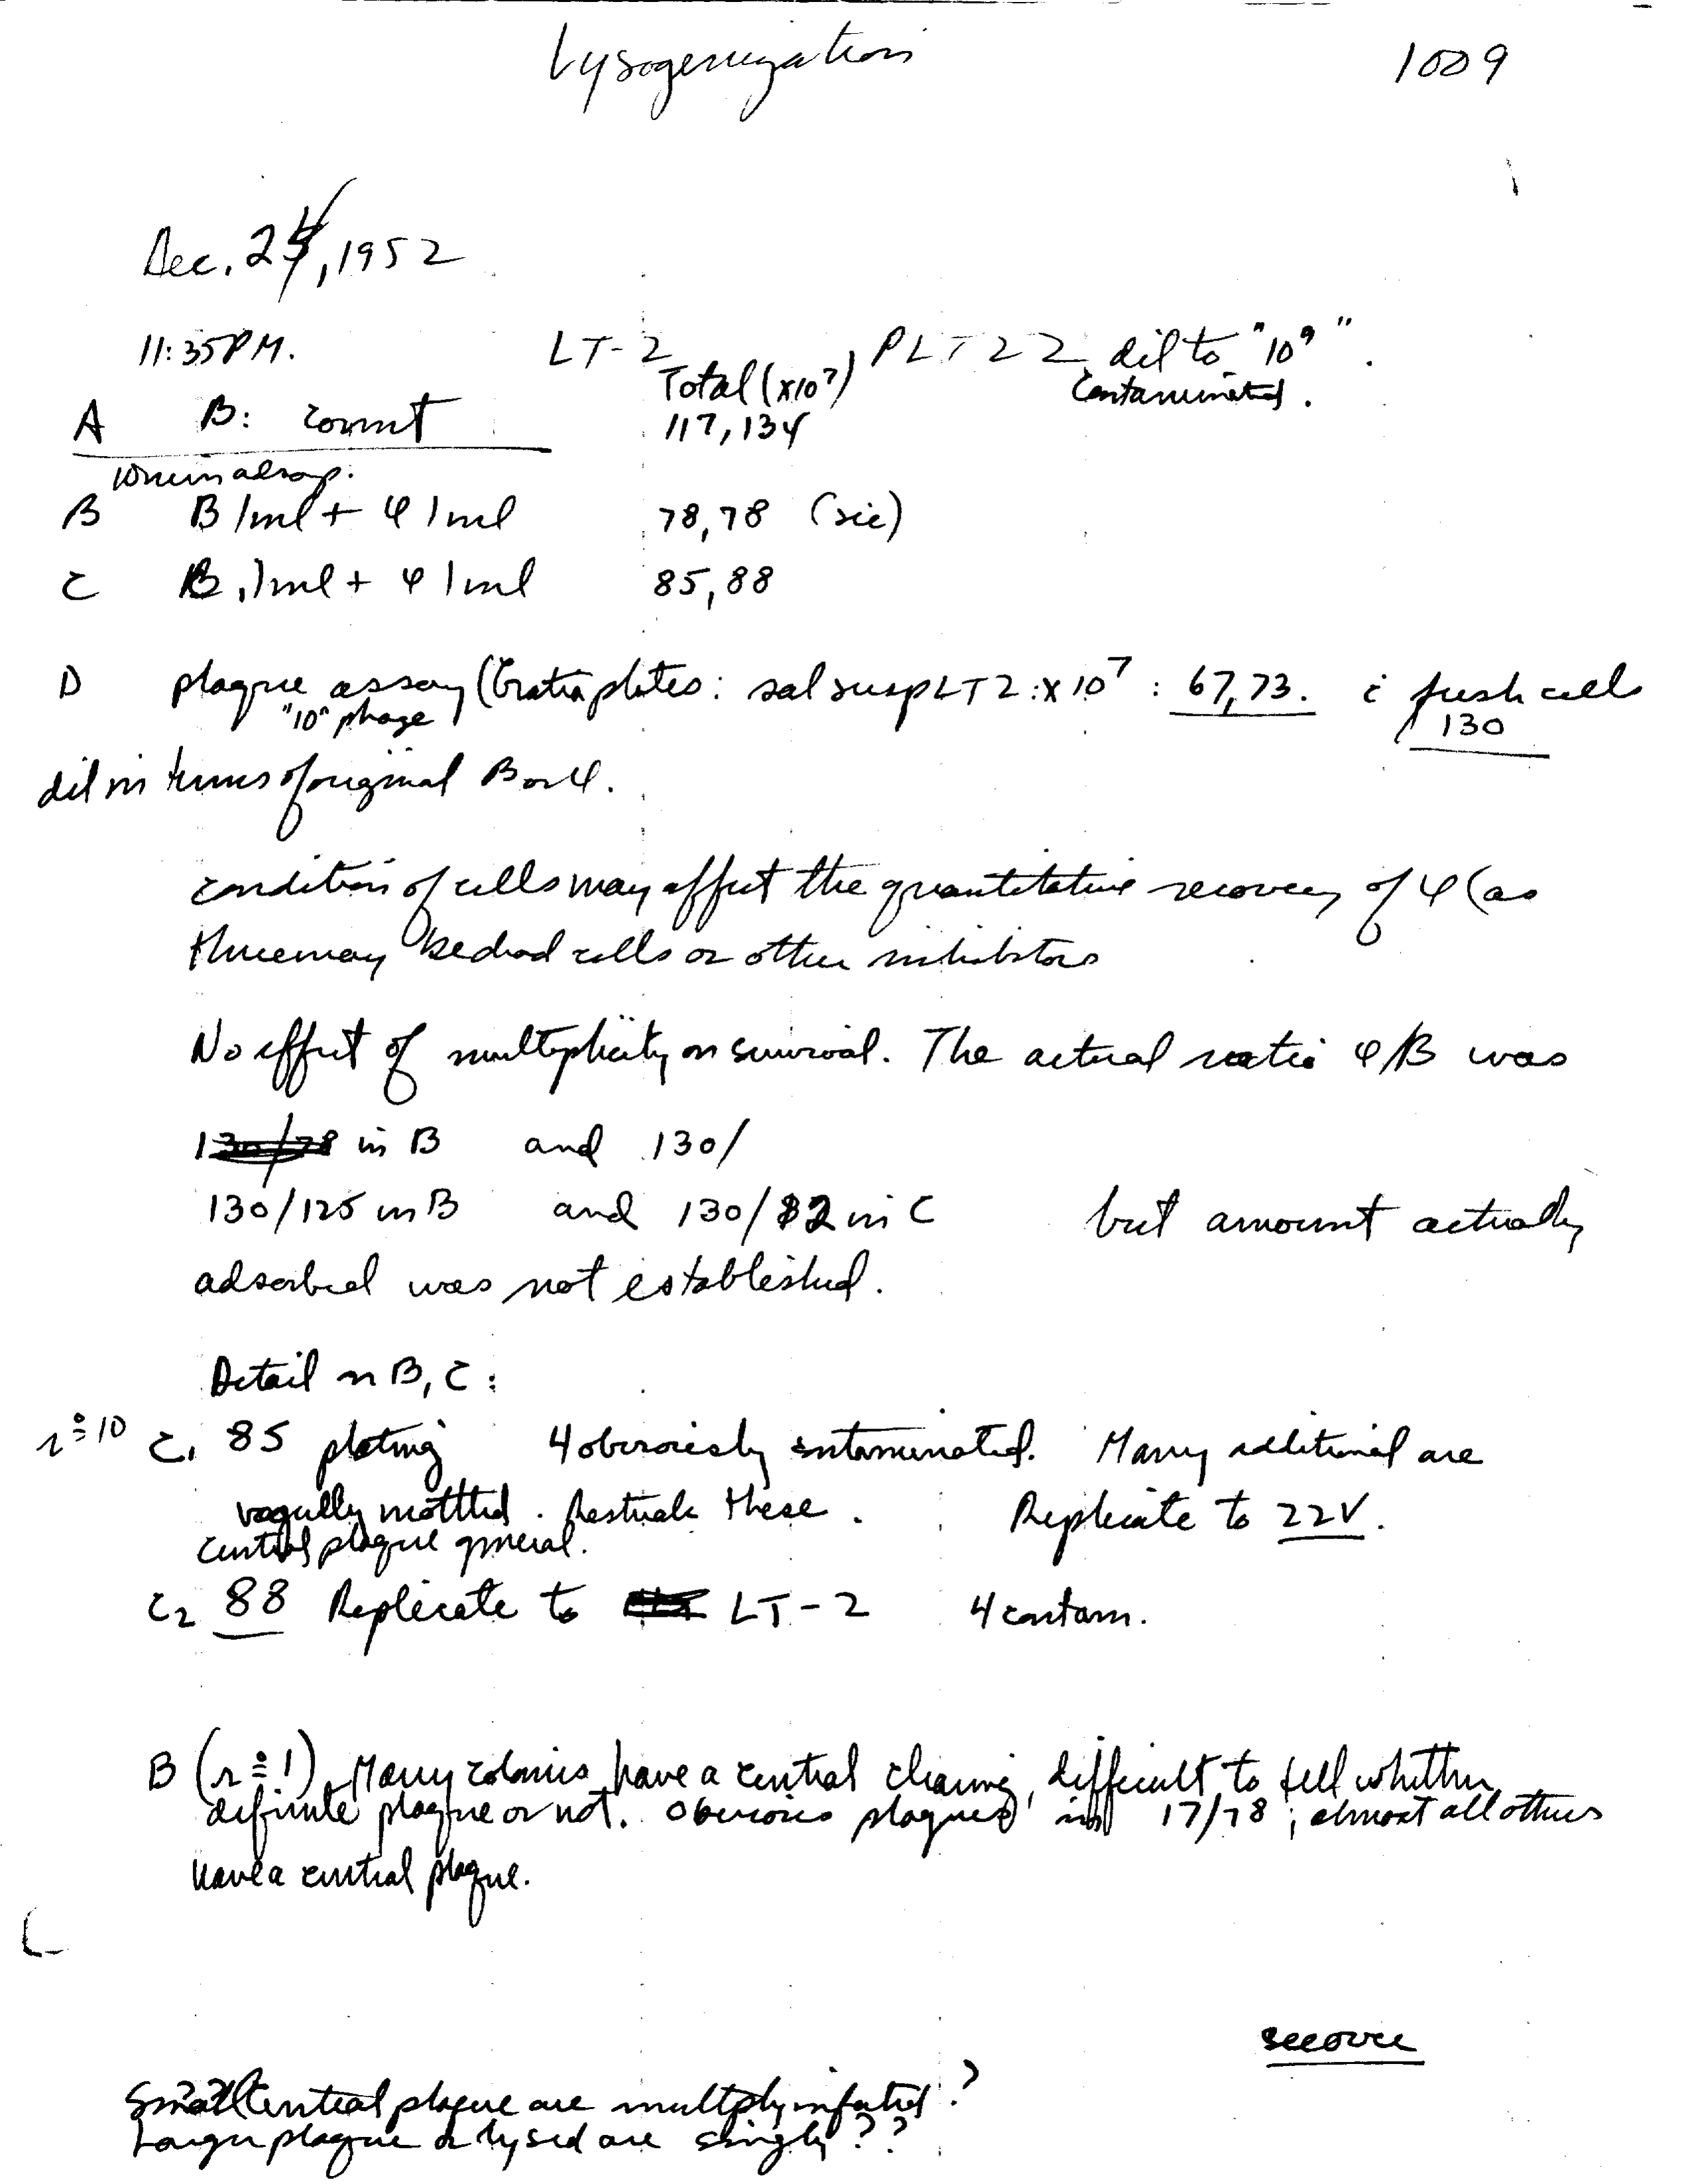 Lysogenization 1009
Dec. 24, 1952
11:35PM. LT-2, PLT22 dil to "10⁹".
Total (x10⁷) Contaminated.
A B: count 117, 134
10 min adsorp.
B B 1ml + φ 1ml 78, 78 (sic)
C B .1ml + φ 1ml 85, 88
D plaque assay (Gratia plates: sal susp LT2: x10⁷: 67, 73. c̄ fresh cells
"10" phage 130
dil in terms of original B or φ.
condition of cells may affect the quantitative recovery of φ (as
there may be dead cells or other inhibitors
No effect of multiplicity on survival. The actual ratio φ/B was
130/78 in B and 130/
130/125 in B and 130/82 in C but amount actually
adsorbed was not established.
Detail on B, C:
r≑10 C₁ 85 plating 4 obviously contaminated. Many additional are
vaguely mottled. Restreak these. Replicate to 22V.
Central plaque general.
C₂ 88 Replicate to LT-2 4 contam.
B (r≑1) Many colonies have a central clearing, difficult to tell whether
definite plaque or not. Obvious plaques in 17/78; almost all others
have a central plaque.
see over
Small central plaque are multiply infected?
Larger plaque or lysed are singly??